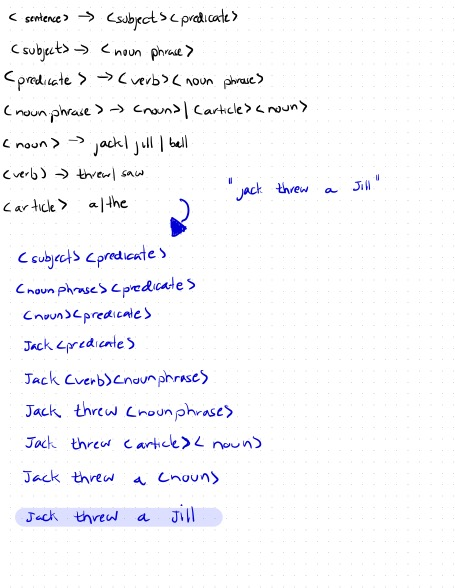 <sentence> → <subject><predicate>
<subject> → <noun phrase>
<predicate> → <verb><noun phrase>
<noun phrase> → <noun>|<article><noun>
<noun> → jack|jill|ball
<verb> → threw|saw
<article> a|the
"jack threw a Jill"
<subject><predicate>
<noun phrase><predicate>
<noun><predicate>
Jack <predicate>
Jack <verb><noun phrase>
Jack threw <noun phrase>
Jack threw <article><noun>
Jack threw a <noun>
Jack threw a Jill